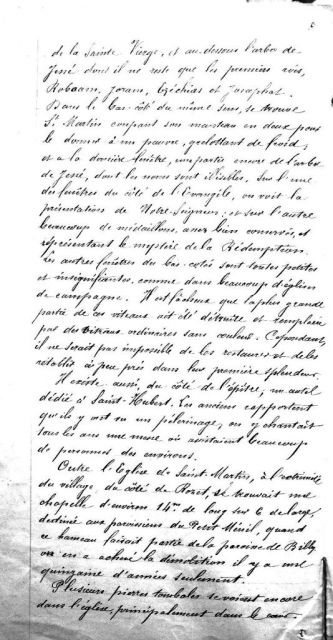 de la Sainte Vierge, et au dessus l'arbre de
Jessé dont il ne reste que les premiers rois,
Roboam, Joram, Ezéchias et Josaphat.
Dans le bas-côté du même sens, se trouve
St Martin coupant son manteau en deux pour
le donner à un pauvre, grelottant de froid,
et a la dernière fenêtre, une partie encore de l'arbre
de Jessé, dont les noms sont illisibles. Sur l'une
des fenêtres du côté de l'Evangile, on voit la
présentation de Notre-Seigneur, et sur l'autre
beaucoup de médaillons, assez bien conservés, et
représentant le mystère de la Rédemption.
Les autres fenêtres des bas-côtés sont toutes petites
et insignifiantes, comme dans beaucoup d'églises
de campagne. Il est fâcheux que la plus grande
partie de ces vitraux ait été détruite et remplacée
par des vitraux ordinaires sans couleur. Cependant,
il ne serait pas impossible de les restaurer et de les
rétablir à peu près dans leur première splendeur.
Il existe aussi, du côté de l'épître, un autel
dédié à Saint-Hubert. Les anciens rapportent
qu'ils y ont vu un pèlerinage, on y chantait
tous les ans une messe où assistaient beaucoup
de personnes des environs.
Outre l'Eglise de Saint-Martin, à l'extrémité
du village du côté de Rozet, se trouvait une
chapelle d'environ 14m de long sur 6 de large,
destinée aux paroissiens du Petit Mesnil, quand
ce hameau faisait partie de la paroisse de Billy,
on en a achevé la démolition il y a une
quinzaine d'années seulement.
Plusieurs pierres tombales se voient encore
dans l'église, principalement dans le cœur.